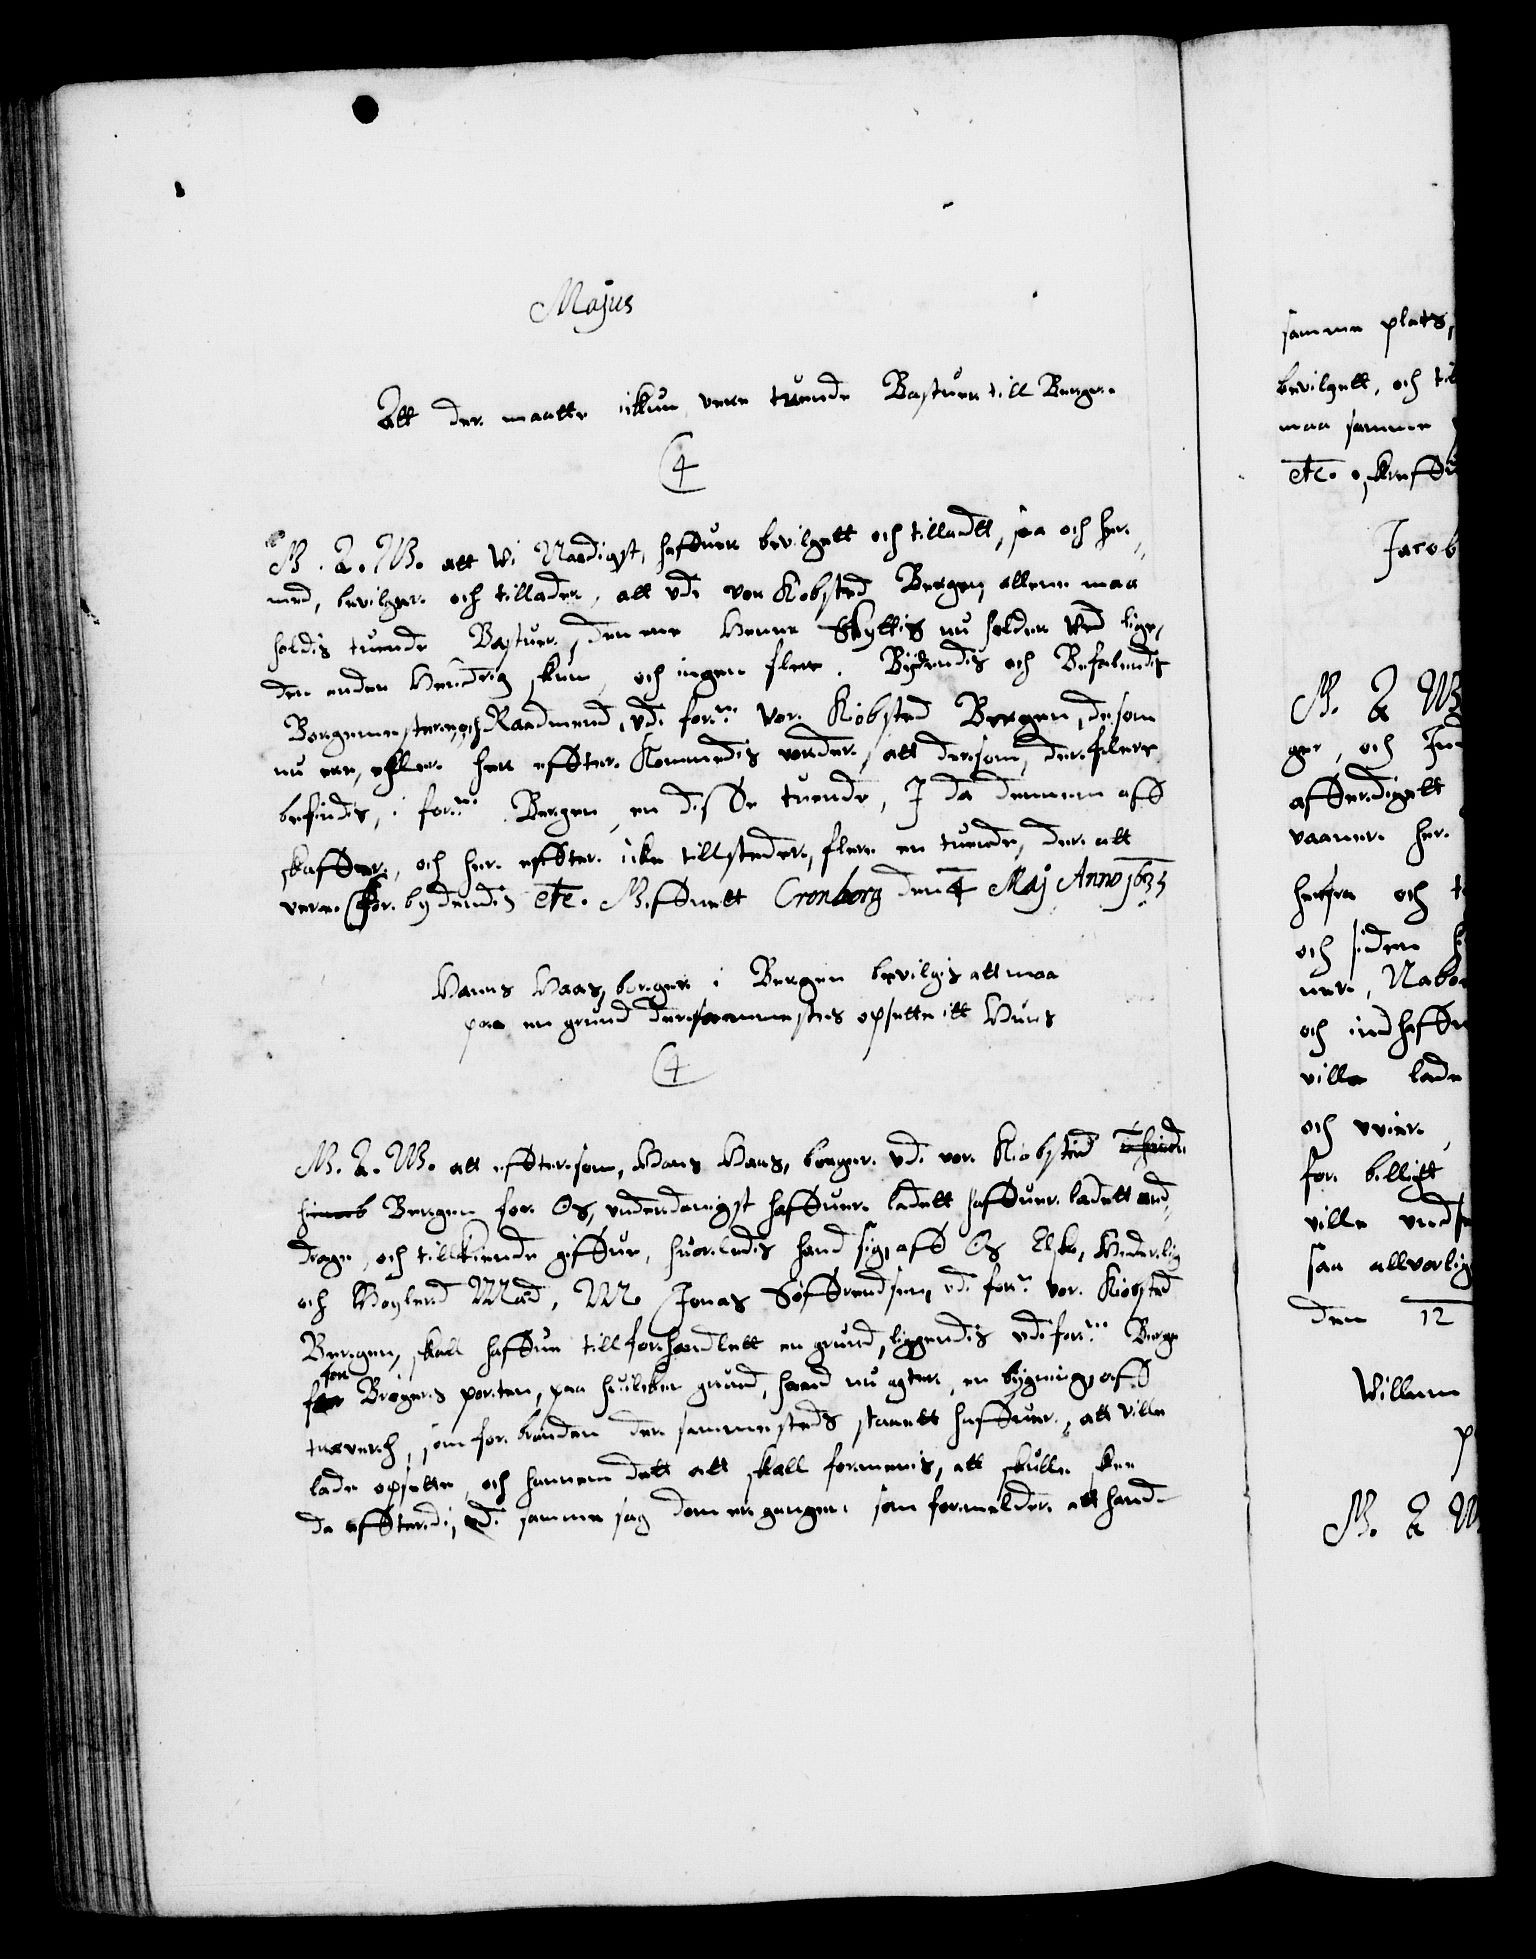 Majus
Att der maatte ickun vere tuende Bastuer till Bergen
4
G. A. W. att Wi Naadigst, haffuer bevilgett och tilladt, saa och her-
med, bevilger och tillader, att vdi vor Kobsted Bergen, allene maa
holdis tuende Bastuer, den ene Henne Skyttis nu holder Ved lige,
den anden Hendrig skun, och ingen flere. Bydendis och Befalendis
Borgemestere och Raadmend, vdi forne: Vor Kiobsted Bergen, de som
nu ere, eller her effter Kommendis vorder, att dersom, der flere
befindis, i forne: Bergen, en disse tuende, I da dennem aff
skaffer, och her effter icke tillsteder, flere en tuende, der att
vere. Forbydendis etc. Giffuett Cronborg den 4 Maj Anno 1635
Hanns Haas, borger i Bergen bevilgis att maa
paa en grund dersammestes opsette itt Huus
4
G. A. W. att effterson, Hans Haas, borger vdi vor Kiobsted
Bergen for Os, vnderdanigst haffuer ladett haffuer ladett and
drage, och tillkiende giffue, huorledis hand sig, aff Os Elske, Hederlig
och Høylerd Mand, Mr Jonas Søffrendsen, vdi forne vor Kiobsted
Bergen, skall haffue tillforhandlett en grund, liggendis vdi forne: Berge
for
Brøgers porten, paa huilcken grund, hand nu agter, en bygning, aff
træverch, som for branden der sammesteds staaett haffuer, att ville
lade opsette, och hannem dett att skall formenis, att skulle skee
da effterdi, vdi samme sag dom er gangen som formelder att hand
samme plads,
bevilgett, och til
maa samme
etc. skreffu
Jacob
G. A. W
ger, och
afferdigett
vaaner her
herfra och t
och siden
ner, Nabo
och indhaffue
ville lade
och
for billigt
ville vnds
saa allvorlig
den 12
Willem
p
G. A W